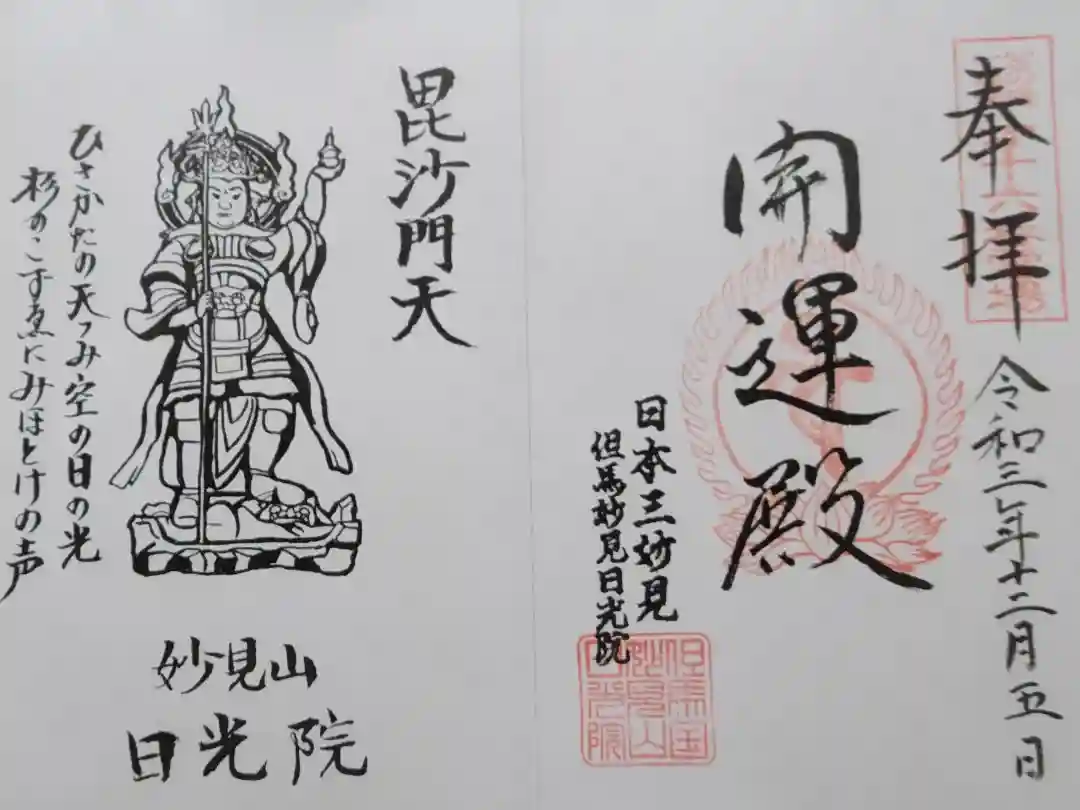 奉拝
令和三年十二月五日
開運殿
日本三妙見
但馬妙見日光院
但馬国
妙見山
日光院
毘沙門天
ひさかたの天つみ空の日の光
杉のこずゑにみほとけの声
妙見山
日光院